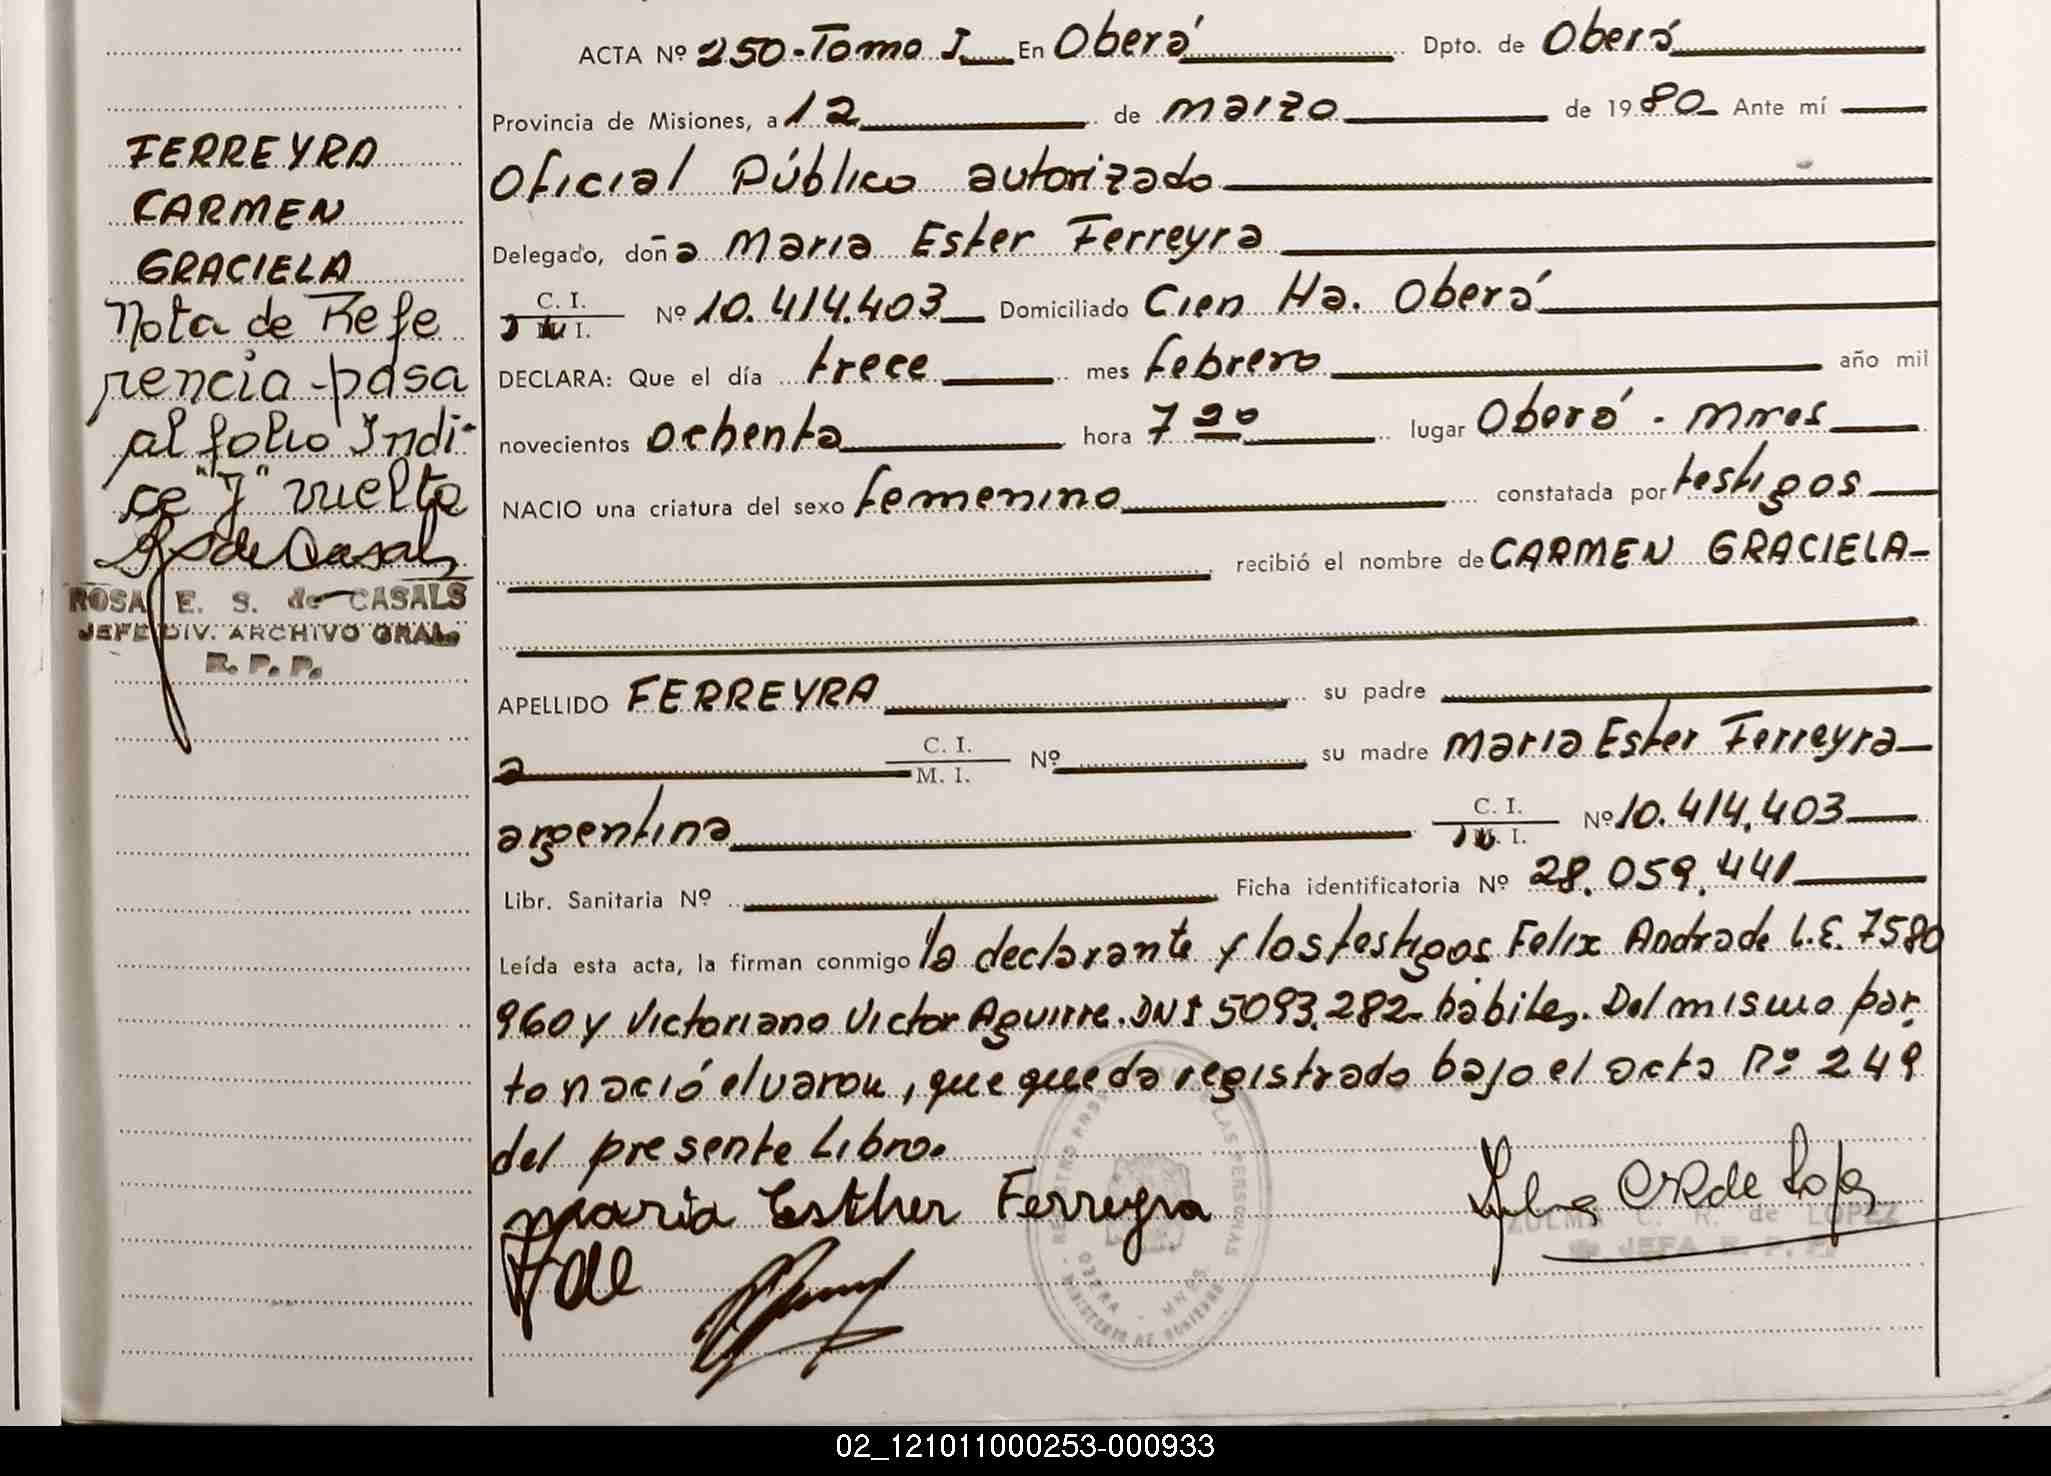 FERREYRA
CARMEN
GRACIELA
Nota de Refe
rencia-pasa
al folio Indi-
ce "J" vuelta
ROSA E. S. de CASALS
JEFE DIV. ARCHIVO GRAL.
R. P. P.
ACTA Nº 250-Tomo I En Oberá Dpto. de Oberá
Provincia de Misiones, a 12 de marzo de 1980 Ante mí
Oficial Público autorizado
Delegado, doña Maria Ester Ferreyra
C. I. Nº 10.414.403 Domiciliado Cien Ha. Oberá
DECLARA: Que el día trece mes febrero año mil
novecientos ochenta hora 7 20 lugar Oberá - Mnes
NACIO una criatura del sexo femenino constatada por testigos
recibió el nombre de CARMEN GRACIELA-
APELLIDO FERREYRA su padre
a C. I. M. I. Nº su madre Maria Ester Ferreyra-
argentina C. I. Nº 10.414.403
Libr. Sanitaria Nº Ficha identificatoria Nº 28.059.441
Leída esta acta, la firman conmigo la declarante y los testigos Felix Andrade L.E. 7580
960 y Victoriano Victor Aguirre. DNI 5093.282- hábiles. Del mismo par.
to nació el varon, que queda registrado bajo el acta Nº 249
del presente Libro.
Maria Esther Ferreyra
ZULMA C. R. de LOPEZ
JEFA R. P. P.
02_121011000253-000933